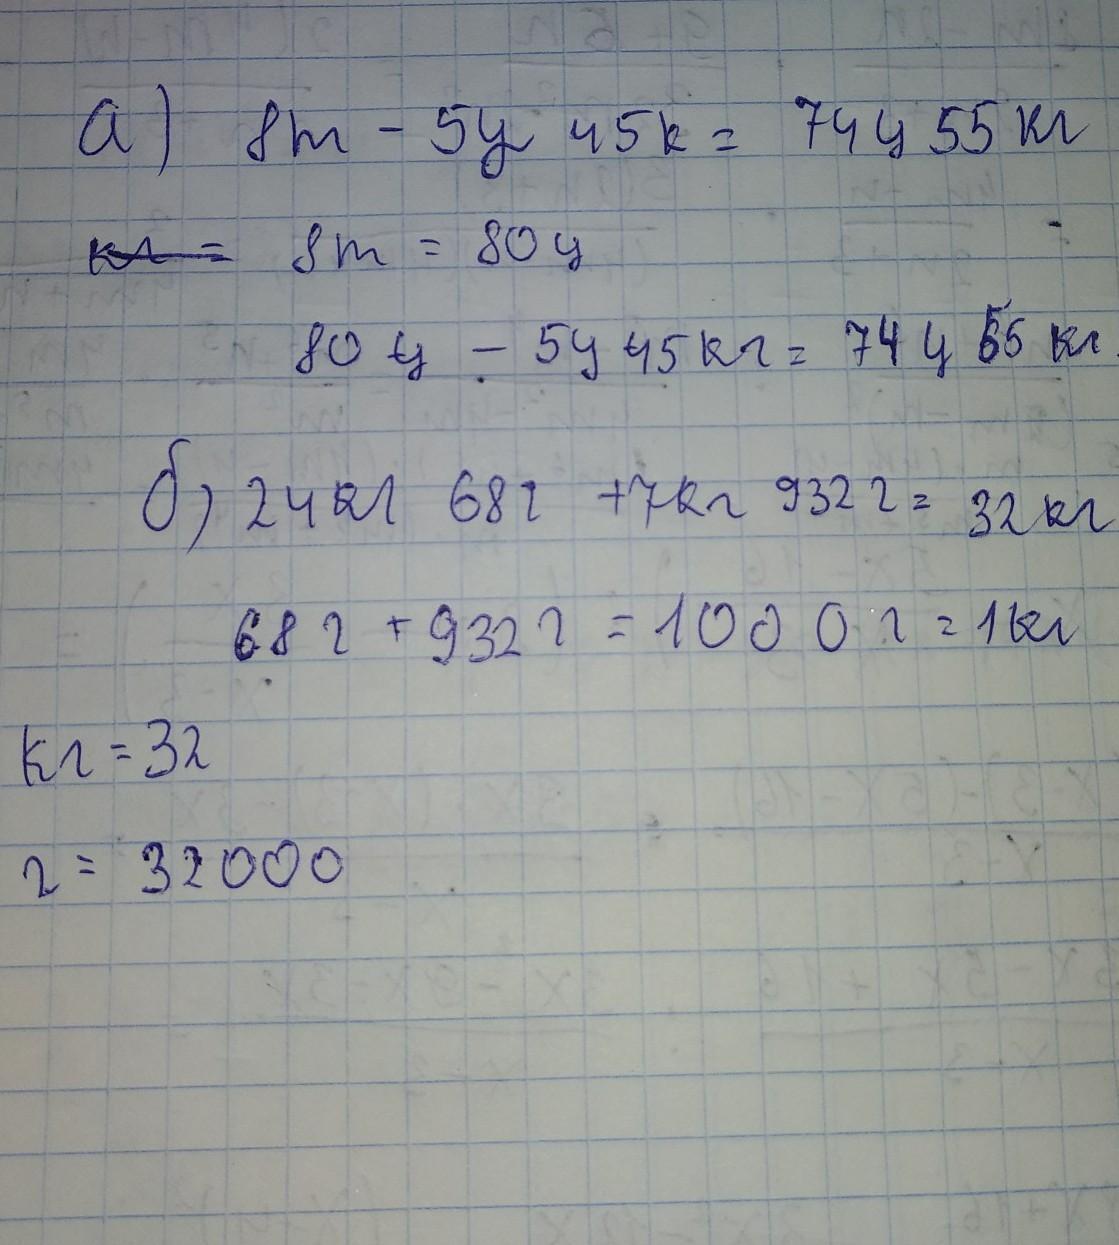 а) 8т - 5ц 45к = 74ц 55кг
кг = 8т = 80ц
80 ц - 5ц 45кг = 74 ц 55 кг.
б) 24кг 68г +7кг 932г = 32кг
68г + 932г = 1000г = 1кг
кг = 32
г = 32000